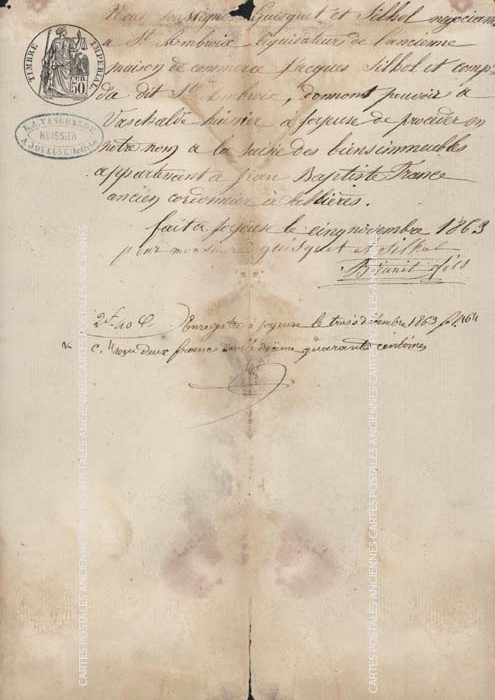 TIMBRE IMPÉRIAL
50
VASCHALDE
HUISSIER
A JOYEUSE
Nous soussignés Guisquet et Silhol négociants
à St Ambroix, liquidateurs de l'ancienne
maison de commerce Jacques Silhol et comp
du dit St Ambroix, donnont pouvoir à
Vaschalde huissier à Joyeuse de procéder en
notre nom à la saisie des biens immeubles
appartenant à Jean Baptiste France
ancien cordonnier à
fait à Joyeuse le cinq novembre 1863
pour monsieur guisquet et Silhol
fils
2f 40 C Enregistré à Joyeuse le trois décembre 1863 fo 164
c. 4 reçu deux francs décime quarante centimes
CARTES POSTALES ANCIENNES CARTES POSTALES ANCIENNES
CARTES POSTALES ANCIENNES CARTES POSTALES ANCIENNES